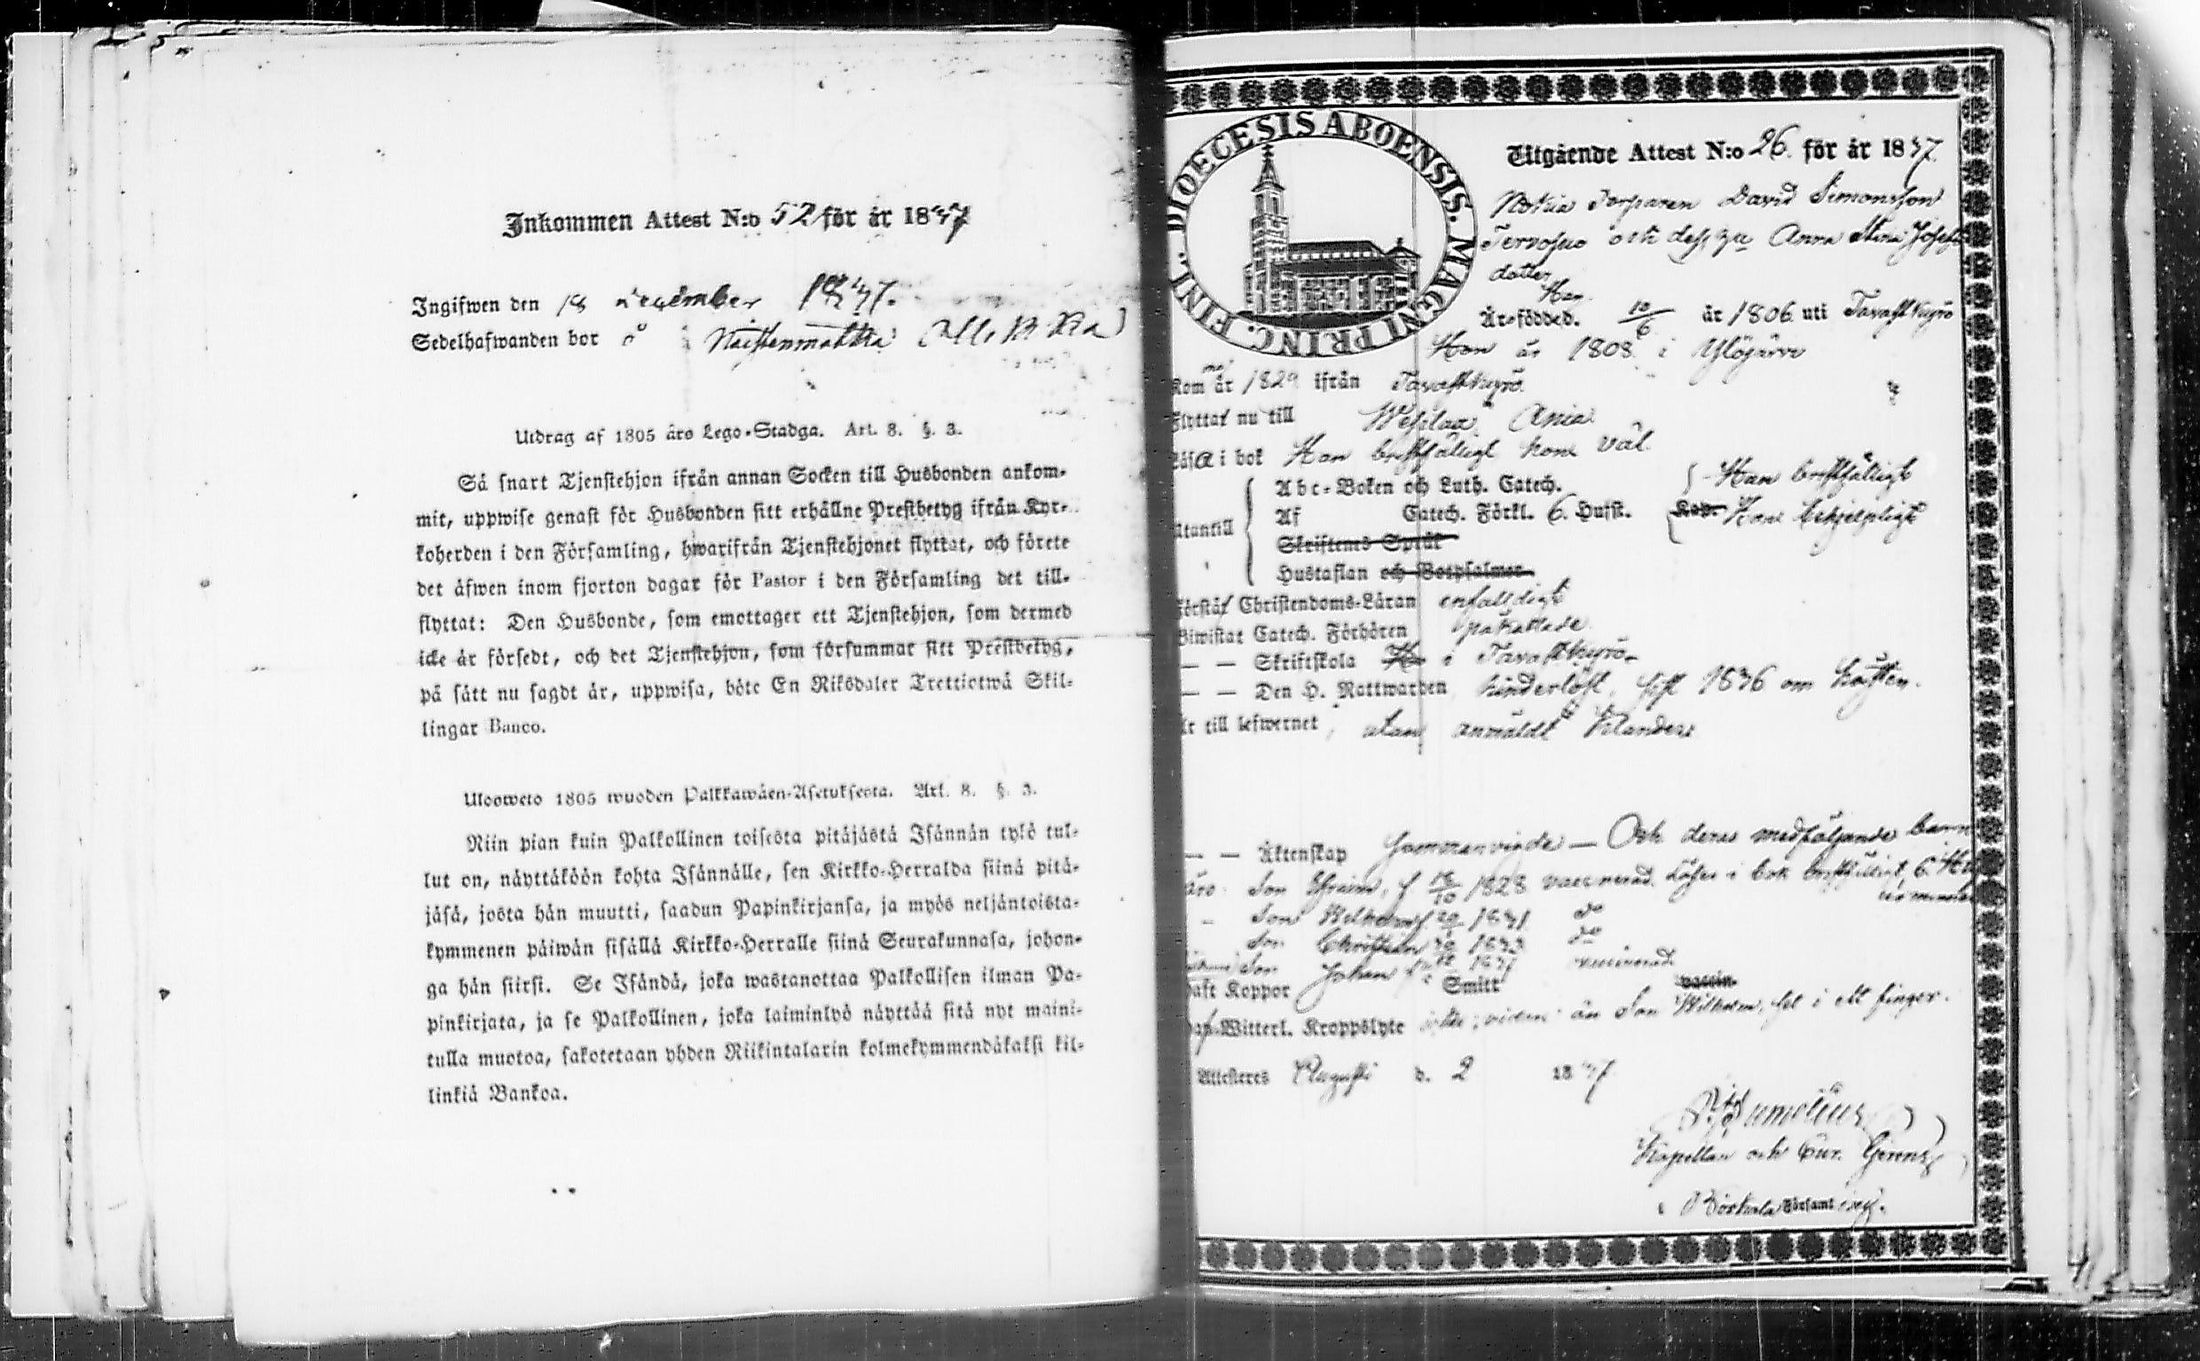 Inkommen Attest N:o 52 för år 1837
Ingifwen den 18 december 1837.
Sedelhafwanden bor å Naistenmatka
Utdrag af 1805 års Lego-Stadga. Art. 8. §. 3.
Så snart Tjenstehjon ifrån annan Socken till Husbonden ankom-
mit, uppwise genast för Husbonden sitt erhållne Prestbetyg ifrån Kyr-
koherden i den Församling, hwarifrån Tjenstehjonet flyttat, och förete
det äfwen inom fjorton dagar för Pastor i den Församling det till-
flyttat: Den Husbonde, som emottager ett Tjenstehjon, som dermed
icke är försedt, och det Tjenstehjon, som försummar sitt Prestbetyg,
på sätt nu sagdt är, uppwisa, böte En Riksdaler Trettiotwå Skil-
lingar Banco.
Ulosweto 1805 wuoden Palkkawäen-Asetuksesta. Art. 8. §. 3.
Niin pian kuin Palkollinen toisesta pitäjästä Isännän tykö tul-
lut on, näyttäköön kohta Isännälle, sen Kirkko-Herralda siinä pitä-
jäsä, josta hän muutti, saadun Papinkirjansa, ja myös neljäntoista-
kymmenen päiwän sisällä Kirkko-Herralle siinä Seurakunnasa, johon-
ga hän siirsi. Se Isändä, joka wastanottaa Palkollisen ilman Pa-
pinkirjata, ja se Palkollinen, joka laiminlyö näyttää sitä nyt maini-
tulla muotoa, sakotetaan yhden Riikintalarin kolmekymmendäkaksi kil-
linkiä Bankoa.
FINL. DIOECESIS ABOENSIS. MAGNI PRINC.
Utgående Attest N:o 26. för år 1837.
Nokia Torparen David Simonsson
Tervosuo och dess hu Anna Stina Josefs
dotter
Han
År född d. 10/6 år 1806 uti Tavastkyro
Hon år 1808 i Ylöjärvi
Kom år 1829 ifrån Tavastkyro
Flyttat nu till Wesilax Ania
Läsa i bok Han bristfälligt hon väl
Abc-Boken och Luth. Catech. Han bristfälligt
Utantill Af Catech. Förkl. 6. Hufst. Hon
Skriftenes Språk
Hustaflan och Botpsalmer
Förstår Christendoms-Läran enfaldigt
Biwistat Catech. Förhören
— — Skriftskola i Tavastkyro
— — Den H. Nattwarden hinderlöst, sist 1836 om hösten.
Är till lefwernet, utan anmäldt
— — Äktenskap Sammanvigde — Och deras medföljande barn
Son Efraim, f 1828 vaccinerad, Läser i bok bristfälligt, 6.
Son Wilhelm f 1831 do
Son Christian 1833 do
Son Johan vaccinerad
Haft Koppor Smitt vaccin
Haf. Witterl. Kroppslyte än Son Wilhelm, fel i ett finger.
Attesteres Augusti d. 2 1837
Kapellan och Cur. Gerens
i Birkala Församling.